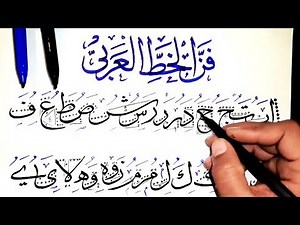 فن الخط العربي
ا ب ت ج ح خ د ر د ر س ش ص ط ع ف
ك ل م ر م ز و ه و ه لا ي ے